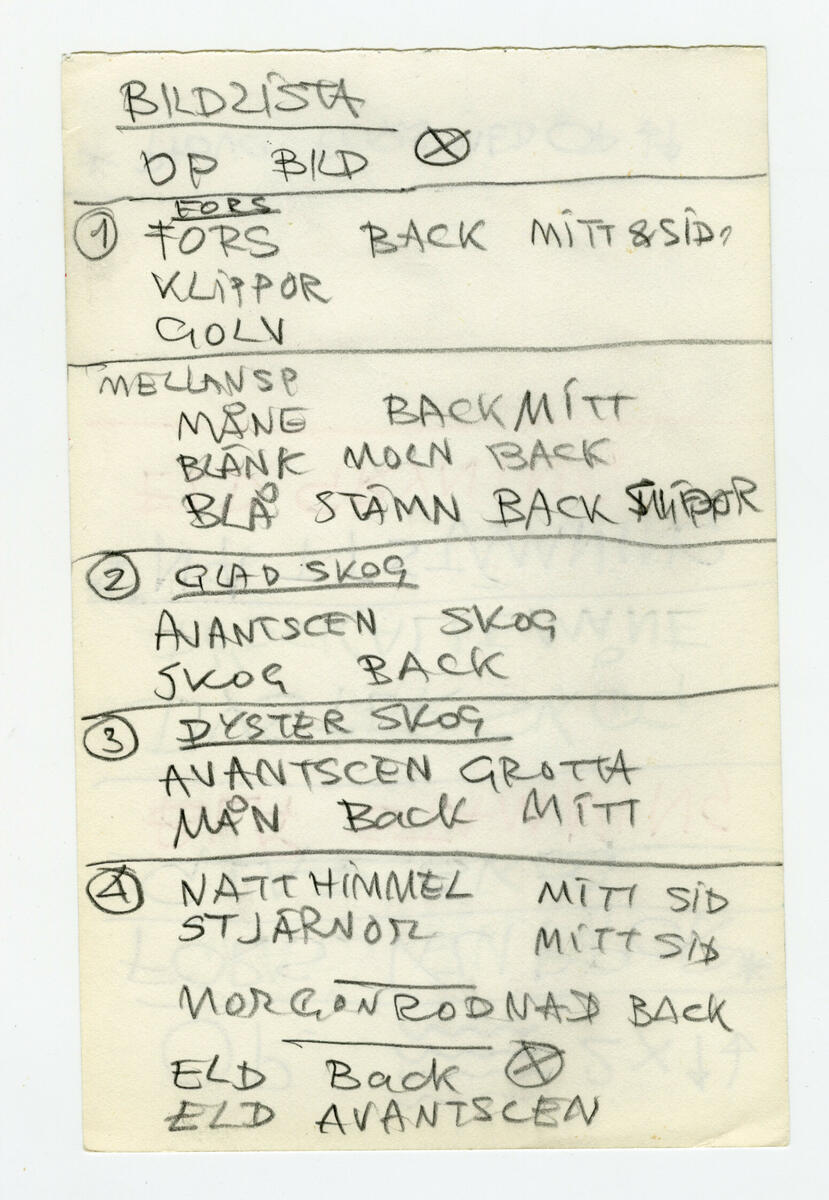 BILDLISTA
OP BILD
FORS
1 FORS BACK MITT & SID
KLIPPOR
GOLV
MELLANSP
MÅNE BACK MITT
BLÄNK MOLN BACK
BLÅ STÄMN BACK
2 GLAD SKOG
AVANTSCEN SKOG
SKOG BACK
3 DYSTER SKOG
AVANTSCEN GROTTA
MÅN Back MITT
4 NATTHIMMEL MITT SID
STJÄRNOR MITT SID
MORGONRODNAD BACK
ELD Back
ELD AVANTSCEN